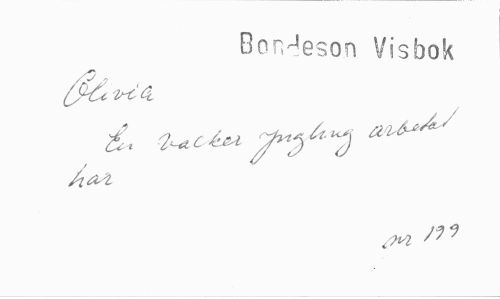 Bondeson Visbok
Olivia
En vacker yngling arbetat
har
nr 199